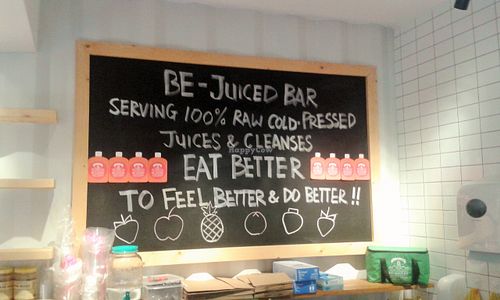 BE-JUICED BAR
SERVING 100% RAW COLD-PRESSED
JUICES & CLEANSES
EAT BETTER
TO FEEL BETTER & DO BETTER !!
HappyCow